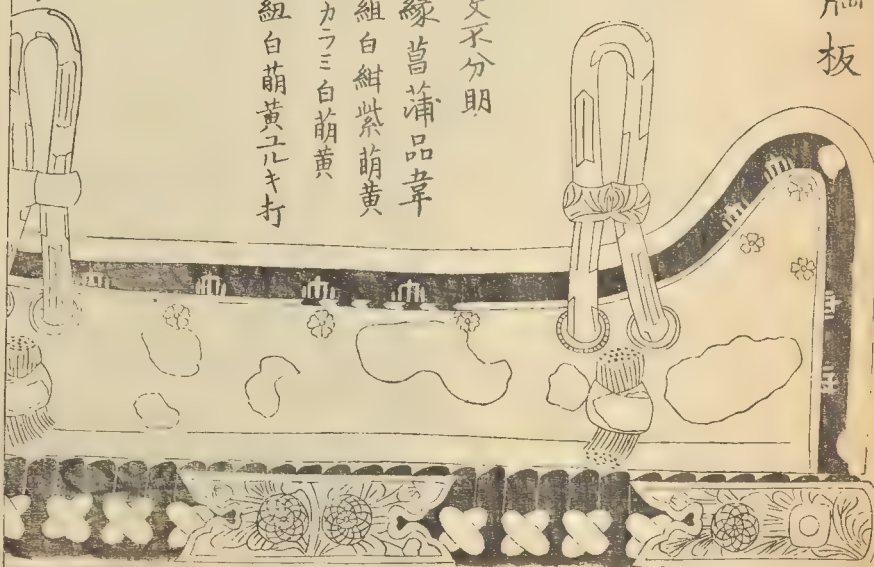 板
文不分明
縁菖蒲品韋
組白紺紫萌黄
カラミ白萌黄
紐白萌黄ユルキ打